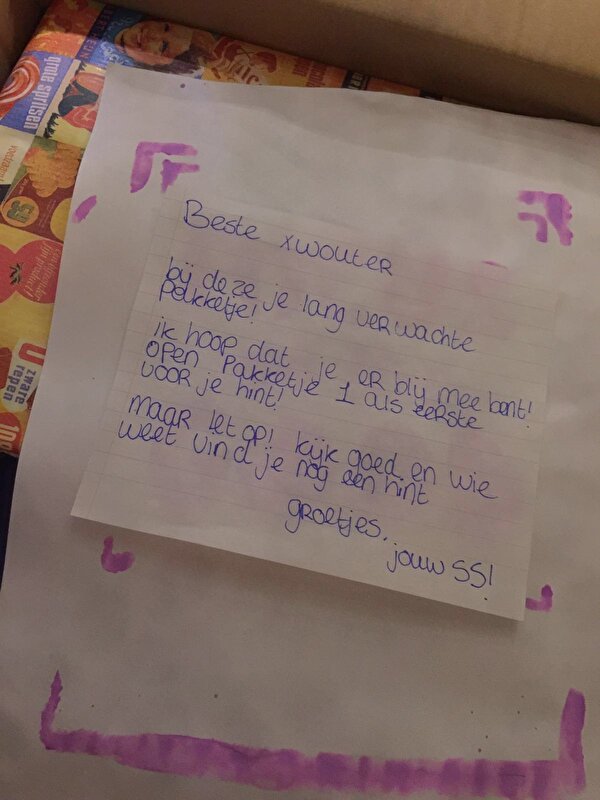 grote spritsen
voordeelrol
zware
repen
Beste xwouter
bij deze je lang verwachte
pakketje!
ik hoop dat je er blij mee bent!
open pakketje 1 als eerste
voor je hint!
maar let op! kijk goed en wie
weet vind je nog een hint
groetjes,
jouw SS!